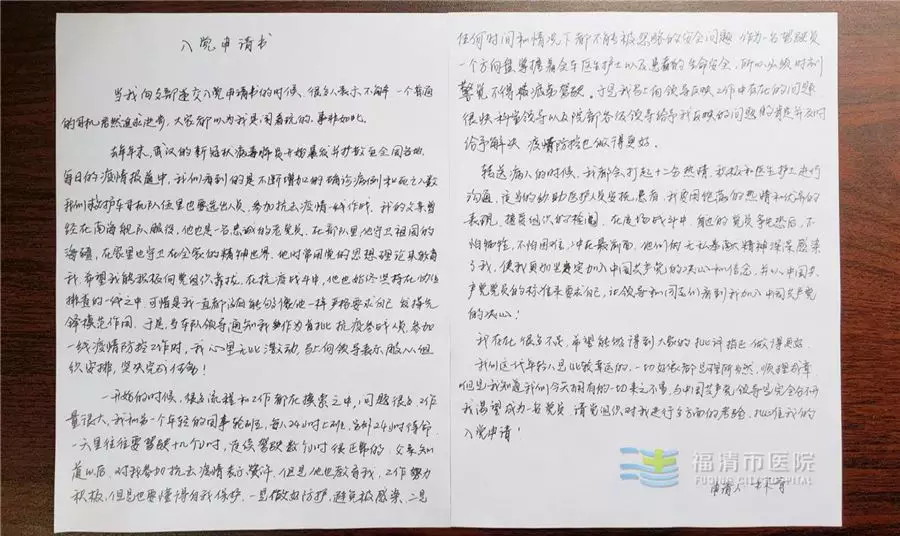 入党申请书
当我向支部递交入党申请书的时候、很多人表示不解 一个普通
的司机居然追求进步，大家都以为我是闹着玩的、事非如此。
去年年末，武汉的新冠状病毒肺炎开始暴发并扩散至全国各地、
每日的疫情报道中，我们看到的是不断增加的确诊病例和死亡人数
我们救护车司机队伍里也要选出人员，参加抗击疫情一线工作时，我的父亲曾
经在南海舰队服役，他也是一名忠诚的老党员、在部队里他守卫祖国的
海疆，在家里他守卫在全家的精神世界、他时常用党的思想理论来教育
我，希望我能积极向党组织靠拢，在抗疫战斗中，他也始终坚持在防疫
排查的一线之中，可惜是我一直都没有能够像他一样严格要求自己 发挥先
锋模范作用、于是，当车队领导通知我作为首批抗疫参战人员，参加
一线疫情防控工作时，我心里无比激动、马上向领导表示服从组
织安排，坚决完成任务！
一开始的时候、很多流程和工作都在摸索之中，问题很多工作
量很大，我和另一个年轻的同事轮班，每人24小时上班，另外24小时待命，
一天里往往要驾驶十几个小时，连续驾驶数个小时很正常的，父亲知
道以后、对我参加抗击疫情表示赞许、但是他也教育我，工作努力
积极，但是也要懂得自我保护，一是做好防护，避免被感染、二是
任何时间和情况下都不能忽略的安全问题 作为一名驾驶员
一个方向盘掌握着全车医生护士以及患者的生命安全，所以必须时刻
警觉不得疲劳驾驶、于是我马上向领导反映工作中存在的问题
很快科室领导以及院部各级领导给予我反映的问题的肯定并及时
给予解决 疫情防控也做得更好。
转送病人的时候，我都会打起十二分热情，积极和医生护士进行
沟通，适当的协助医护人员安抚患者，我要用饱满的热情和优异的
表现，接受组织的检阅、在疫情战斗中，身边的党员争先恐后、不
怕牺牲，不怕困难，冲在最前面，他们的无私奉献精神深深感染
了我，使我更加坚定加入中国共产党的决心和信念，并以中国共
产党党员的标准来要求自己，让领导和同志们看到我加入中国共产党
的决心！
我存在很多不足，希望能够得到大家的批评指正做得更好。
我们这代年轻人是比较幸运的、一切好像都是理所当然，顺理成章
但是我知道我们今天拥有的一切来之不易，与中国共产党领导是完全分不开
我渴望成为一名党员 请党组织对我进行多方面的考验，批准我的
入党申请！
申请人
福清市医院
FUQING CITY HOSPITAL